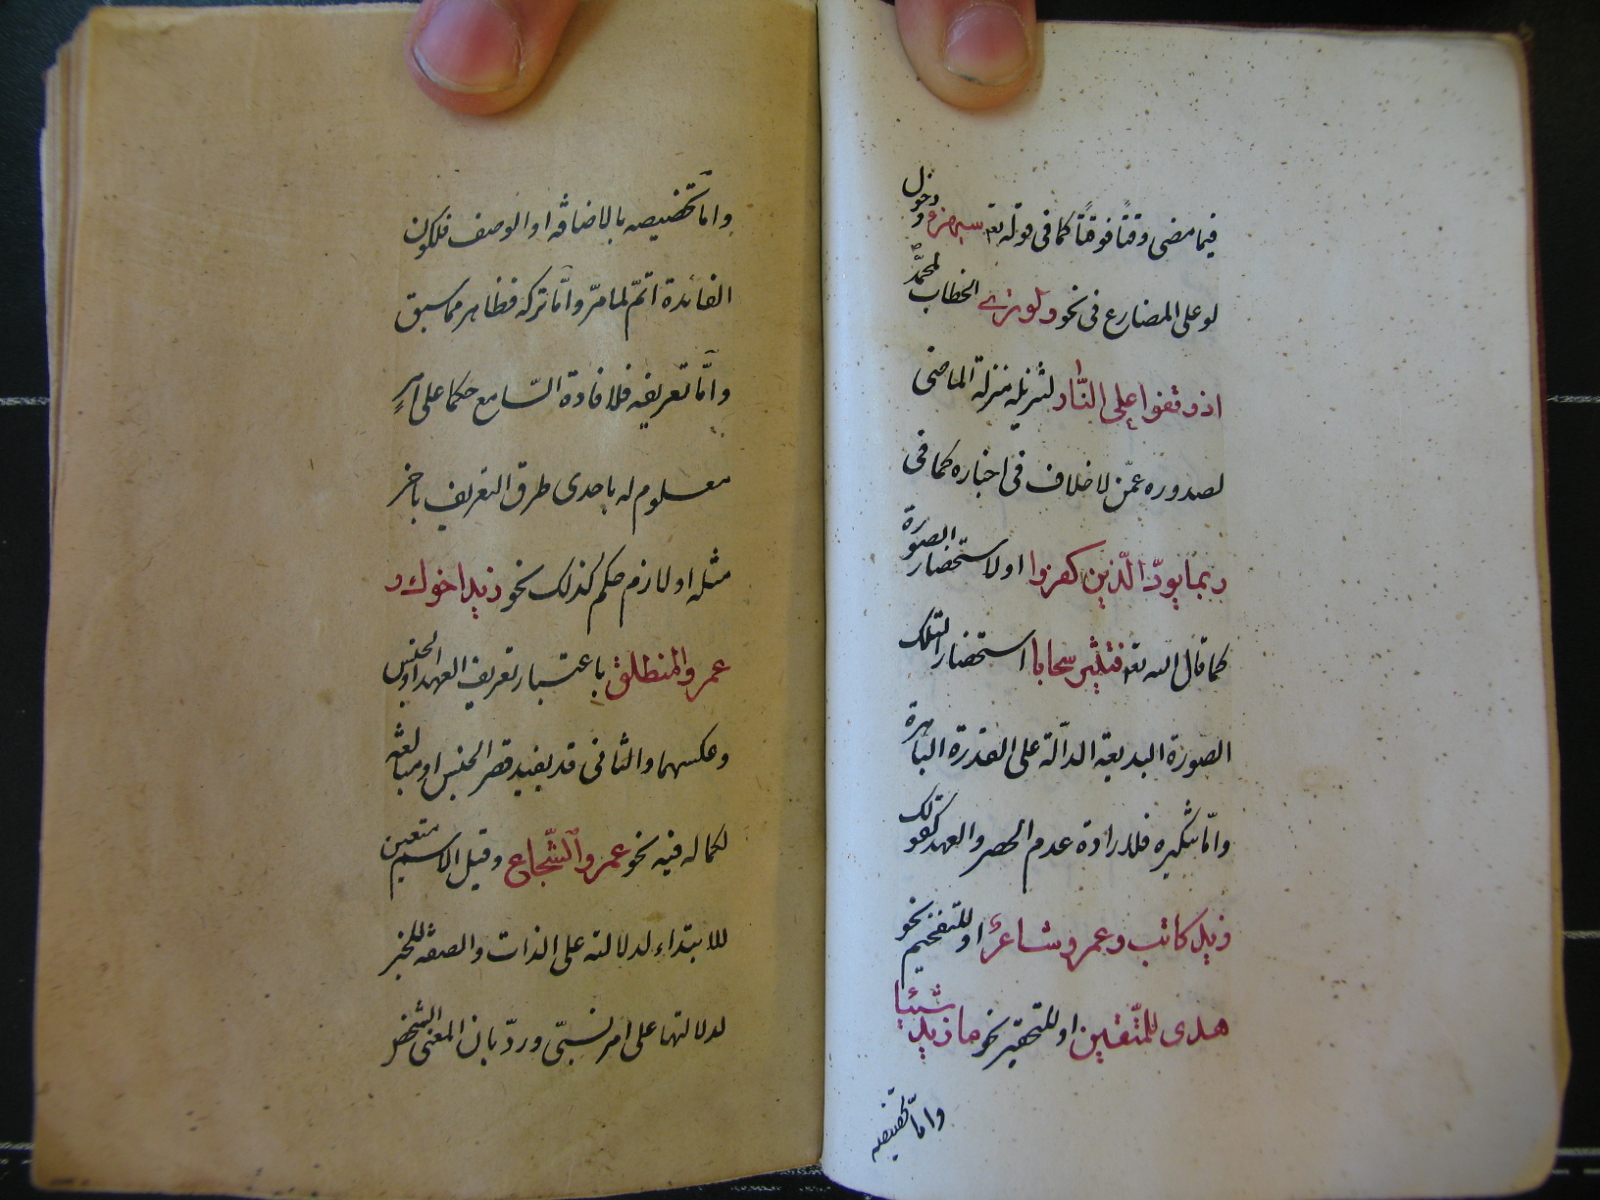 فيما مضى وقتًا فوقتًا كما فى قوله تعـ يستهزئ ودخول
لو على المضارع فى نحو ولو ترى الخطاب لمحمّد
اذ وقفوا على النّار لتنزيله منزلة الماضى
لصدوره عمّن لا خلاف فى اخباره كما فى
ربما يودّ الّذين كفروا او لاستحضار الصورة
كما قال الله تعـ فتثير سحابا استحضارا لتلك
الصورة البديعة الدالّة على القدرة الباهرة
وامّا تنكيره فلارادة عدم الحصر والعهد كقولك
زيد كاتب وعمرو شاعرٌ او للتفخيم نحو
هدى للمتّقين او للتحقير نحو ما زيد شيئا
وامّا تخصيصه
وامّا تخصيصه بالاضافة او الوصف فلكون
الفائدة اتمّ لما مرّ وامّا تركه فظاهر مما سبق
وامّا تعريفه فلافادة السّامع حكما على امرٍ
معلوم له باحدى طرق التعريف بآخر
مثله او لازم حكم كذلك نحو زيد اخوك و
عمرو المنطلق باعتبار تعريف العهد او الجنس
وعكسهما والثانى قد يفيد قصر الجنس او مبالغة
لكماله فيه نحو عمرو الشّجاع وقيل الاسم متعين
للابتداء لدلالته على الذات والصفة للخبر
لدلالتها على امر نسبىّ وردّ بان المعنى الشخص